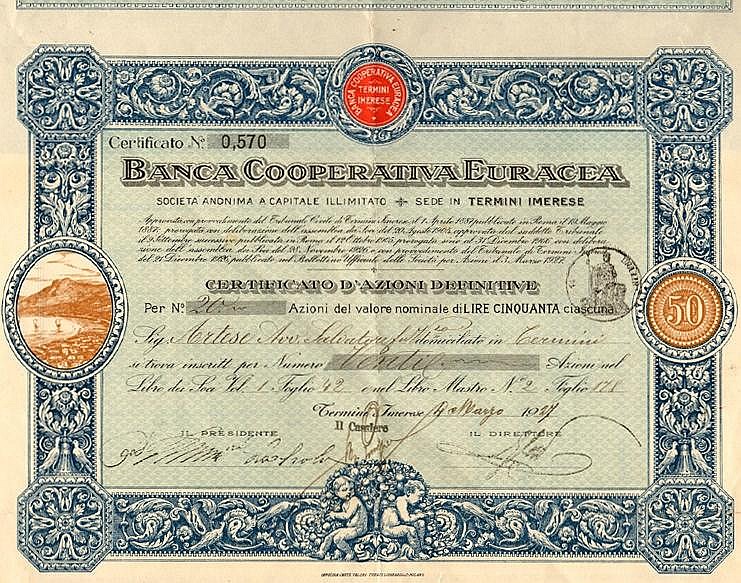 BANCA COOPERATIVA EURACEA
TERMINI
IMERESE
Certificato N° 0,570
BANCA COOPERATIVA EURACEA
SOCIETÀ ANONIMA A CAPITALE ILLIMITATO SEDE IN TERMINI IMERESE
Approvata con provvedimento del Tribunale Civile di Termini Imerese, il 1 Aprile 1887 pubblicato in Roma il 19 Maggio
1887; prorogata con deliberazione dell'assemblea dei Soci del 20 Agosto 1905, approvata dal suddetto Tribunale
il 9 Settembre successivo pubblicata in Roma il 12 Ottobre 1905 prorogata sino al 31 Dicembre 1968 con delibera
zione dell'assemblea dei Soci del 28 Novembre 1920, e con provvedimento del Tribunale di Termini
del 21 Dicembre 1920, pubblicato nel Bollettino Ufficiale delle Società per Azioni il 3 Marzo 1922
CERTIFICATO D'AZIONI DEFINITIVE
Per N° 20 Azioni del valore nominale di LIRE CINQUANTA ciascuna
50
Sig. Artese Avv. Salvatore domiciliato in Termini
si trova inscritt per Numero Venti Azioni nel
Libro dei Soci Vol. 1 Foglio 42 e nel Libro Mastro N. 2 Foglio 178
Termini Imerese 4 Marzo 1927
Il Cassiere
IL PRESIDENTE IL DIRETTORE